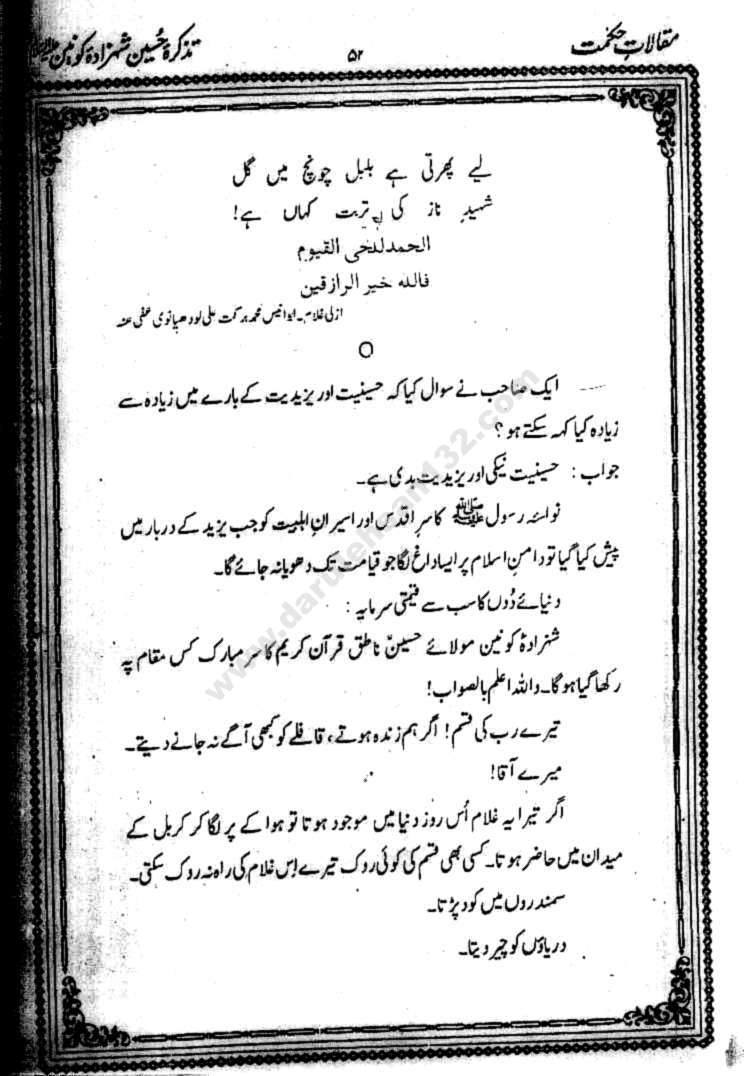 مقالاتِ حکمت
۵۲
تذکرۂ حُسین شہزادۂ کونین
لیے پھرتی ہے بلبل چونچ میں گل
شہیدِ ناز کی تربت کہاں ہے!
الحمدللحی القیوم
فاللہ خیر الرازقین
ازلی غلام۔ ابوانیس محمد برکت علی لودھیانوی عفی عنہ
ایک صاحب نے سوال کیا کہ حسینیت اور یزیدیت کے بارے میں زیادہ سے
زیادہ کیا کہہ سکتے ہو؟
جواب: حسینیت نیکی اور یزیدیت بدی ہے۔
نواسۂ رسول ﷺ کا سرِ اقدس اور اسیرانِ اہلبیت کو جب یزید کے دربار میں
پیش کیا گیا تو دامنِ اسلام پر ایسا داغ لگا جو قیامت تک دھویا نہ جائے گا۔
دنیائے دُوں کا سب سے قیمتی سرمایہ:
شہزادۂ کونین مولائے حسینؓ ناطق قرآن کریم کا سر مبارک کس مقام پہ
رکھا گیا ہوگا۔ واللہ اعلم بالصواب!
تیرے رب کی قسم! اگر ہم زندہ ہوتے، قافلے کو کبھی آگے نہ جانے دیتے۔
میرے آقا!
اگر تیرا یہ غلام اُس روز دنیا میں موجود ہوتا تو ہوا کے پر لگا کر کربل کے
میدان میں حاضر ہوتا۔ کسی بھی قسم کی کوئی روک تیرے اِس غلام کی راہ نہ روک سکتی۔
سمندروں میں کود پڑتا۔
دریاؤں کو چیر دیتا۔
www.darulehsan132.com